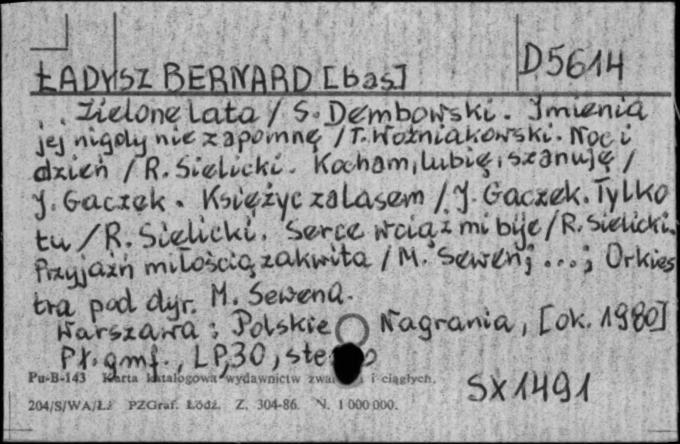 ŁADYSZ BERNARD [bas] D5614
... Zielone lata / S. Dembowski. Imienia
jej nigdy nie zapomnę / T. Woźniakowski. Noc i
dzień / R. Sielicki. Kocham, lubię, szanuję /
J. Gaczek. Księżyc za lasem / J. Gaczek. Tylko
tu / R. Sielicki. Serce wciąż mi bije / R. Sielicki.
Przyjaźń miłością zakwita / M. Sewen; ...; Orkies
tra pod dyr. M. Sewena.
Warszawa: Polskie Nagrania, [ok. 1980]
Pł. gmf., LP, 30,
Pu-B-143 Karta katalogowa wydawnictw i ciągłych.
SX1491
204/S/WA/Ł PZGraf. Łódź. Z. 304-86. N. 1 000 000.